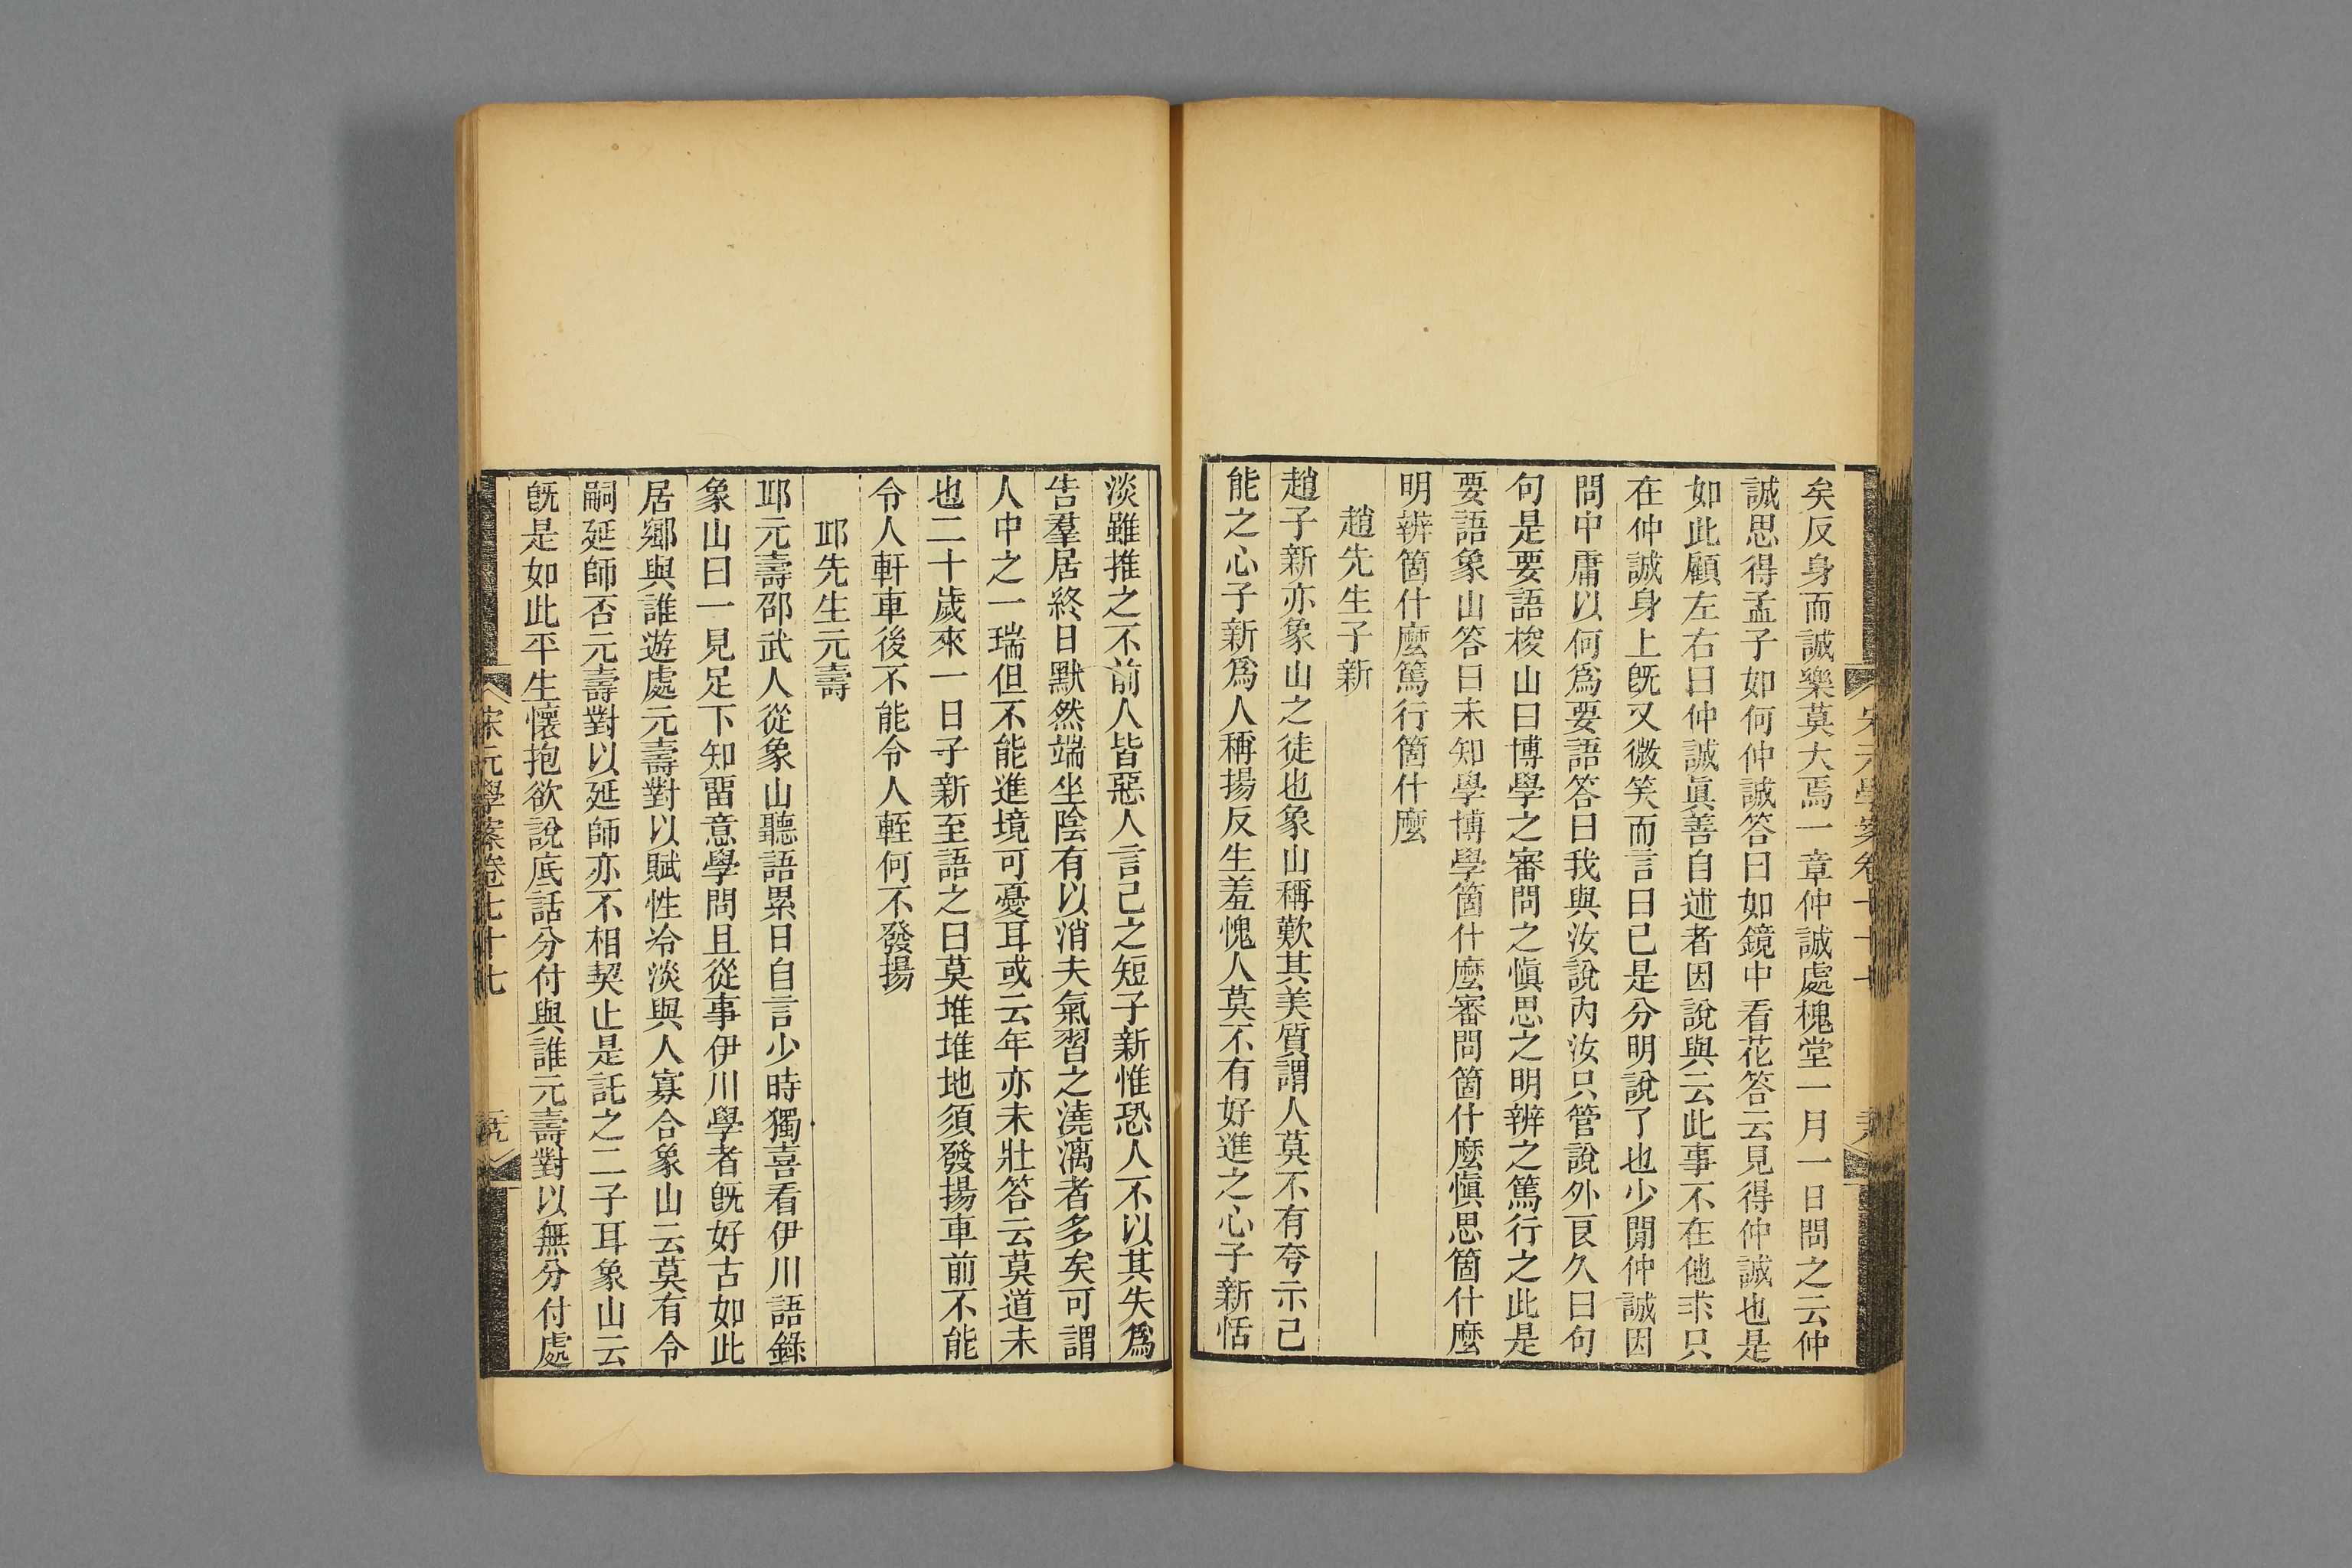 矣反身而誠樂莫大焉一章仲誠處槐堂一月一日問之云仲
誠思得孟子如何仲誠答曰如鏡中看花答云見得仲誠也是
如此顧左右曰仲誠眞善自述者因說與云此事不在他求只
在仲誠身上旣又微笑而言曰已是分明說了也少閒仲誠因
問中庸以何爲要語答曰我與汝說內汝只管說外良久曰句
句是要語梭山曰博學之審問之愼思之明辨之篤行之此是
要語象山答曰未知學博學箇什麼審問箇什麼愼思箇什麼
明辨箇什麼篤行箇什麼
趙先生子新
趙子新亦象山之徒也象山稱歎其美質謂人莫不有夸示己
能之心子新爲人稱揚反生羞愧人莫不有好進之心子新恬
淡雖推之不前人皆惡人言己之短子新惟恐人不以其失爲
告羣居終日默然端坐陰有以消夫氣習之澆漓者多矣可謂
人中之一瑞但不能進境可憂耳或云年亦未壯答云莫道未
也二十歲來一日子新至語之曰莫堆堆地須發揚車前不能
令人軒車後不能令人輊何不發揚
邱先生元壽
邱元壽邵武人從象山聽語累日自言少時獨喜看伊川語錄
象山曰一見足下知畱意學問且從事伊川學者旣好古如此
居鄉與誰遊處元壽對以賦性冷淡與人寡合象山云莫有令
嗣延師否元壽對以延師亦不相契止是託之二子耳象山云
旣是如此平生懷抱欲說底話分付與誰元壽對以無分付處
宋元學案卷七十七